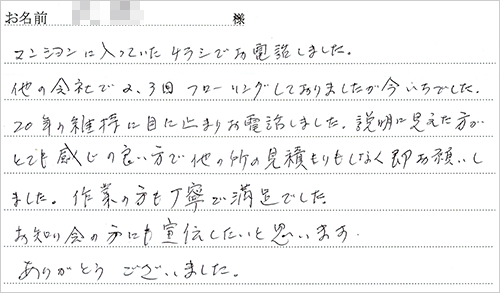 お名前 様
マンションに入っていたチラシでお電話しました。
他の会社で2、3回 フローリングしてありましたが今いちでした。
20年の維持に目に止まりお電話しました。説明に見えた方が
とても感じの良い方で他の所の見積もりもしなく即お願いし
ました。作業の方も丁寧で満足でした。
お知り会の方にも宣伝したいと思います。
ありがとう ございました。